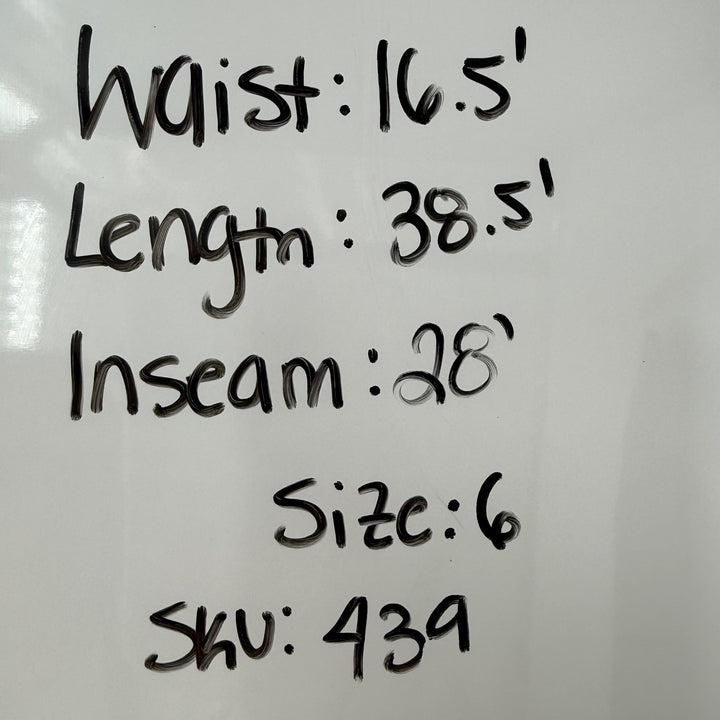 Waist: 16.5'
Length: 38.5'
Inseam: 28'
Size: 6
SKU: 439